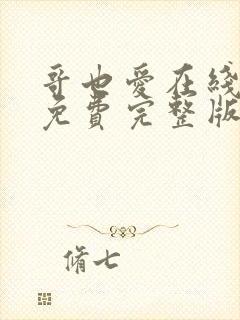 哥也爱在綫
免費完整版
脩七